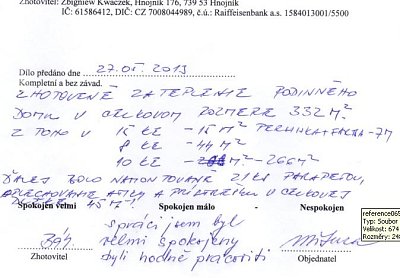 Zhotovitel: Zbigniew Kwaczek, Hnojník 176, 739 53 Hnojník
IČ: 61586412, DIČ: CZ 7008044989, č.ú.: Raiffeisenbank a.s. 1584013001/5500
Dílo předáno dne 27.05 2013
Kompletní a bez závad.
ZHOTOVENÉ ZATEPLENIE RODINNÉHO
DOMU V CELKOVOM ROZMERE 332 M²
Z TOHO V 15 KE - 15 M²
8 KE - 44 M²
10 KE - M² - 266 M²
ĎALEJ BOLO NAMONTOVANÉ 21 KS PARAPETOV,
OPLECHOVANIE ATIKY A PRÍSTREŠKU V CELKOVEJ
45 M
Spokojen velmi Spokojen málo - Nespokojen
správci jsem byl
velmi spokojený
byli hodně pracovití
Zhotovitel Objednatel
reference065
Typ: Soubor
Velikost: 674
Rozměry: 240